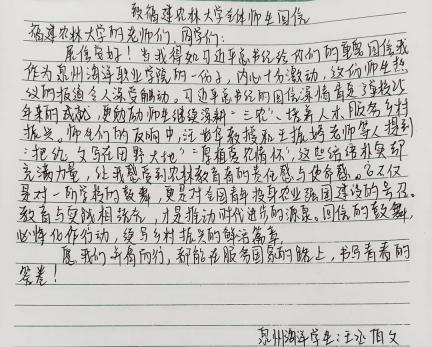 致福建农林大学全体师生回信
福建农林大学的老师们、同学们:
展信安好!当我得知习近平总书记给你们的重要回信,我
作为泉州海洋职业学院的一份子,内心十分激动,这份师生热
议的报道令人深受触动。习近平总书记的回信深情肯定了学校
年来的成就,更勉励师生继续深耕“三农”、培养人才服务乡村
振兴。师生们的反响中,教授和王振老师等人提到
“把论文写在田野大地”“厚植爱农情怀”,这些话语朴实却
充满力量,让我感受到农林教育者的责任感与使命感。它不仅
是对一所学校的鼓舞,更是对全国青年投身农业强国建设的号召。
教育与实践相结合,才是推动时代进步的源泉。回信的鼓舞,
必将化作行动,续写乡村振兴的鲜活篇章。
愿我们并肩前行,都能在服务国家的路上,书写青春的
答卷!
泉州海洋学生:王丞伯文